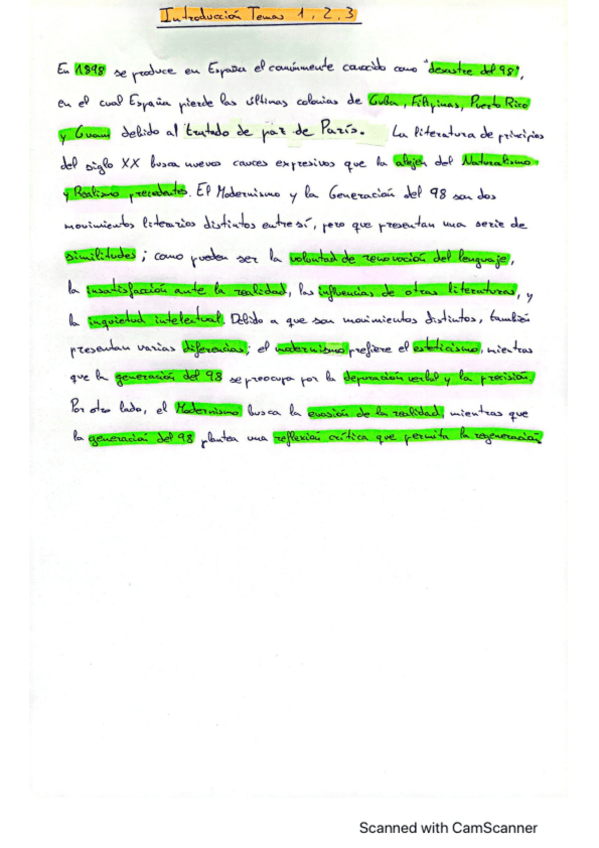 Introducción Temas 1, 2, 3
En 1898 se produce en España el comúnmente conocido como "desastre del 98",
en el cual España pierde las últimas colonias de Cuba, Filipinas, Puerto Rico
y Guam debido al tratado de paz de París. La literatura de principios
del siglo XX busca nuevos cauces expresivos que la alejen del Naturalismo
y Realismo precedentes. El Modernismo y la Generación del 98 son dos
movimientos literarios distintos entre sí, pero que presentan una serie de
similitudes; como pueden ser la voluntad de renovación del lenguaje,
la insatisfacción ante la realidad, las influencias de otras literaturas, y
la inquietud intelectual. Debido a que son movimientos distintos, también
presentan varias diferencias; el modernismo prefiere el esteticismo, mientras
que la generación del 98 se preocupa por la depuración verbal y la precisión.
Por otro lado, el Modernismo busca la evasión de la realidad, mientras que
la generación del 98 plantea una reflexión crítica que permita la regeneración
Scanned with CamScanner